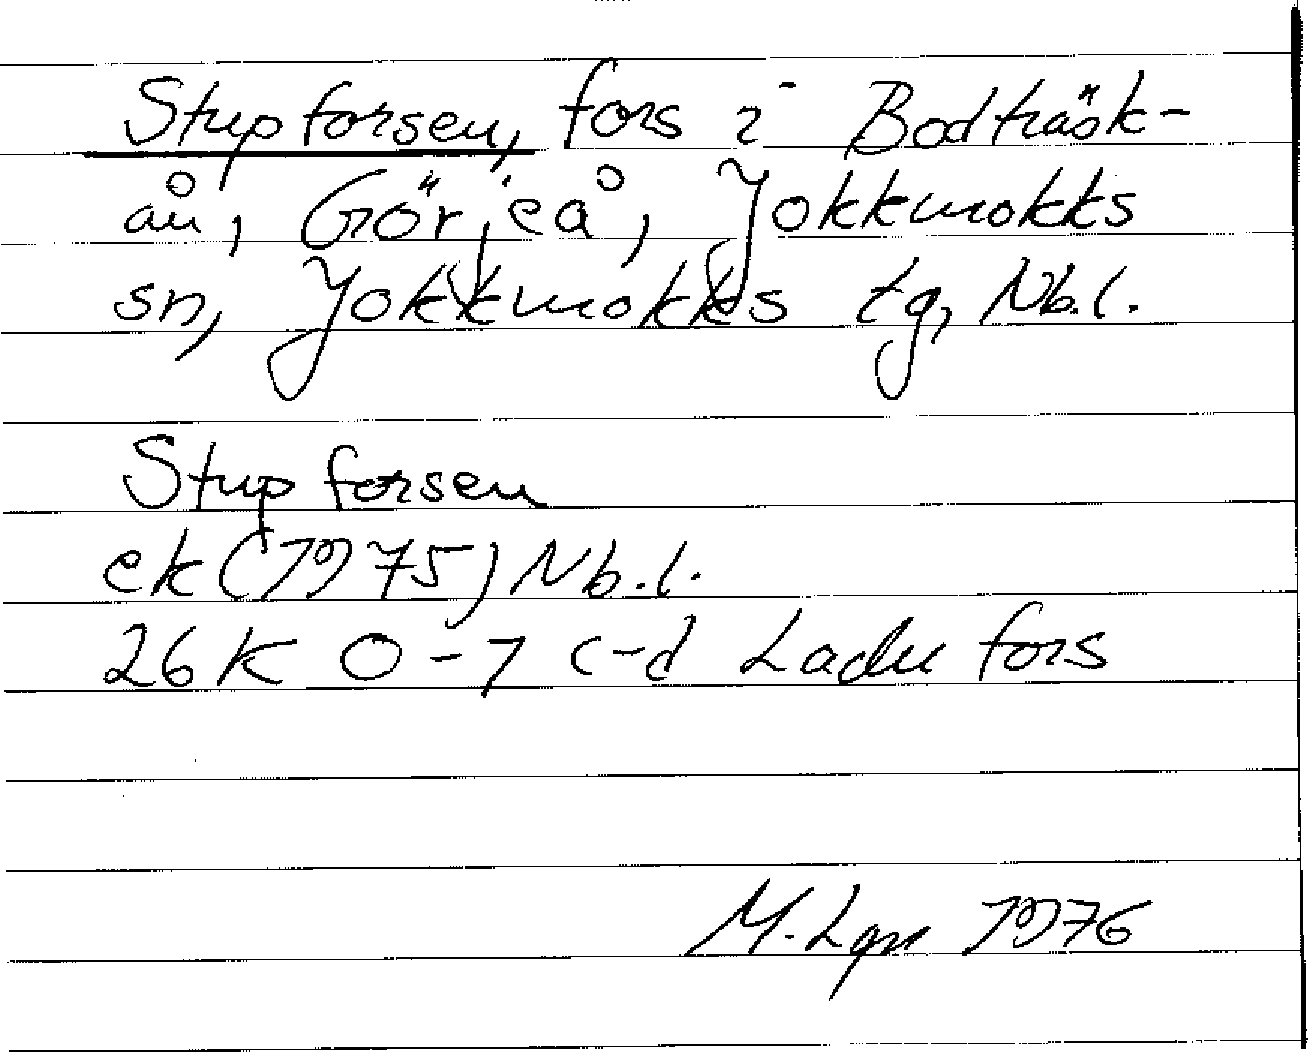 Stupforsen, fors i Bodträsk-
ån, Görjeå, Jokkmokks
sn, Jokkmokks tg, Nb.l.
Stupforsen
ek (1975) Nb.l.
26 K 0-7 c-d fors
M. Lgn 1976